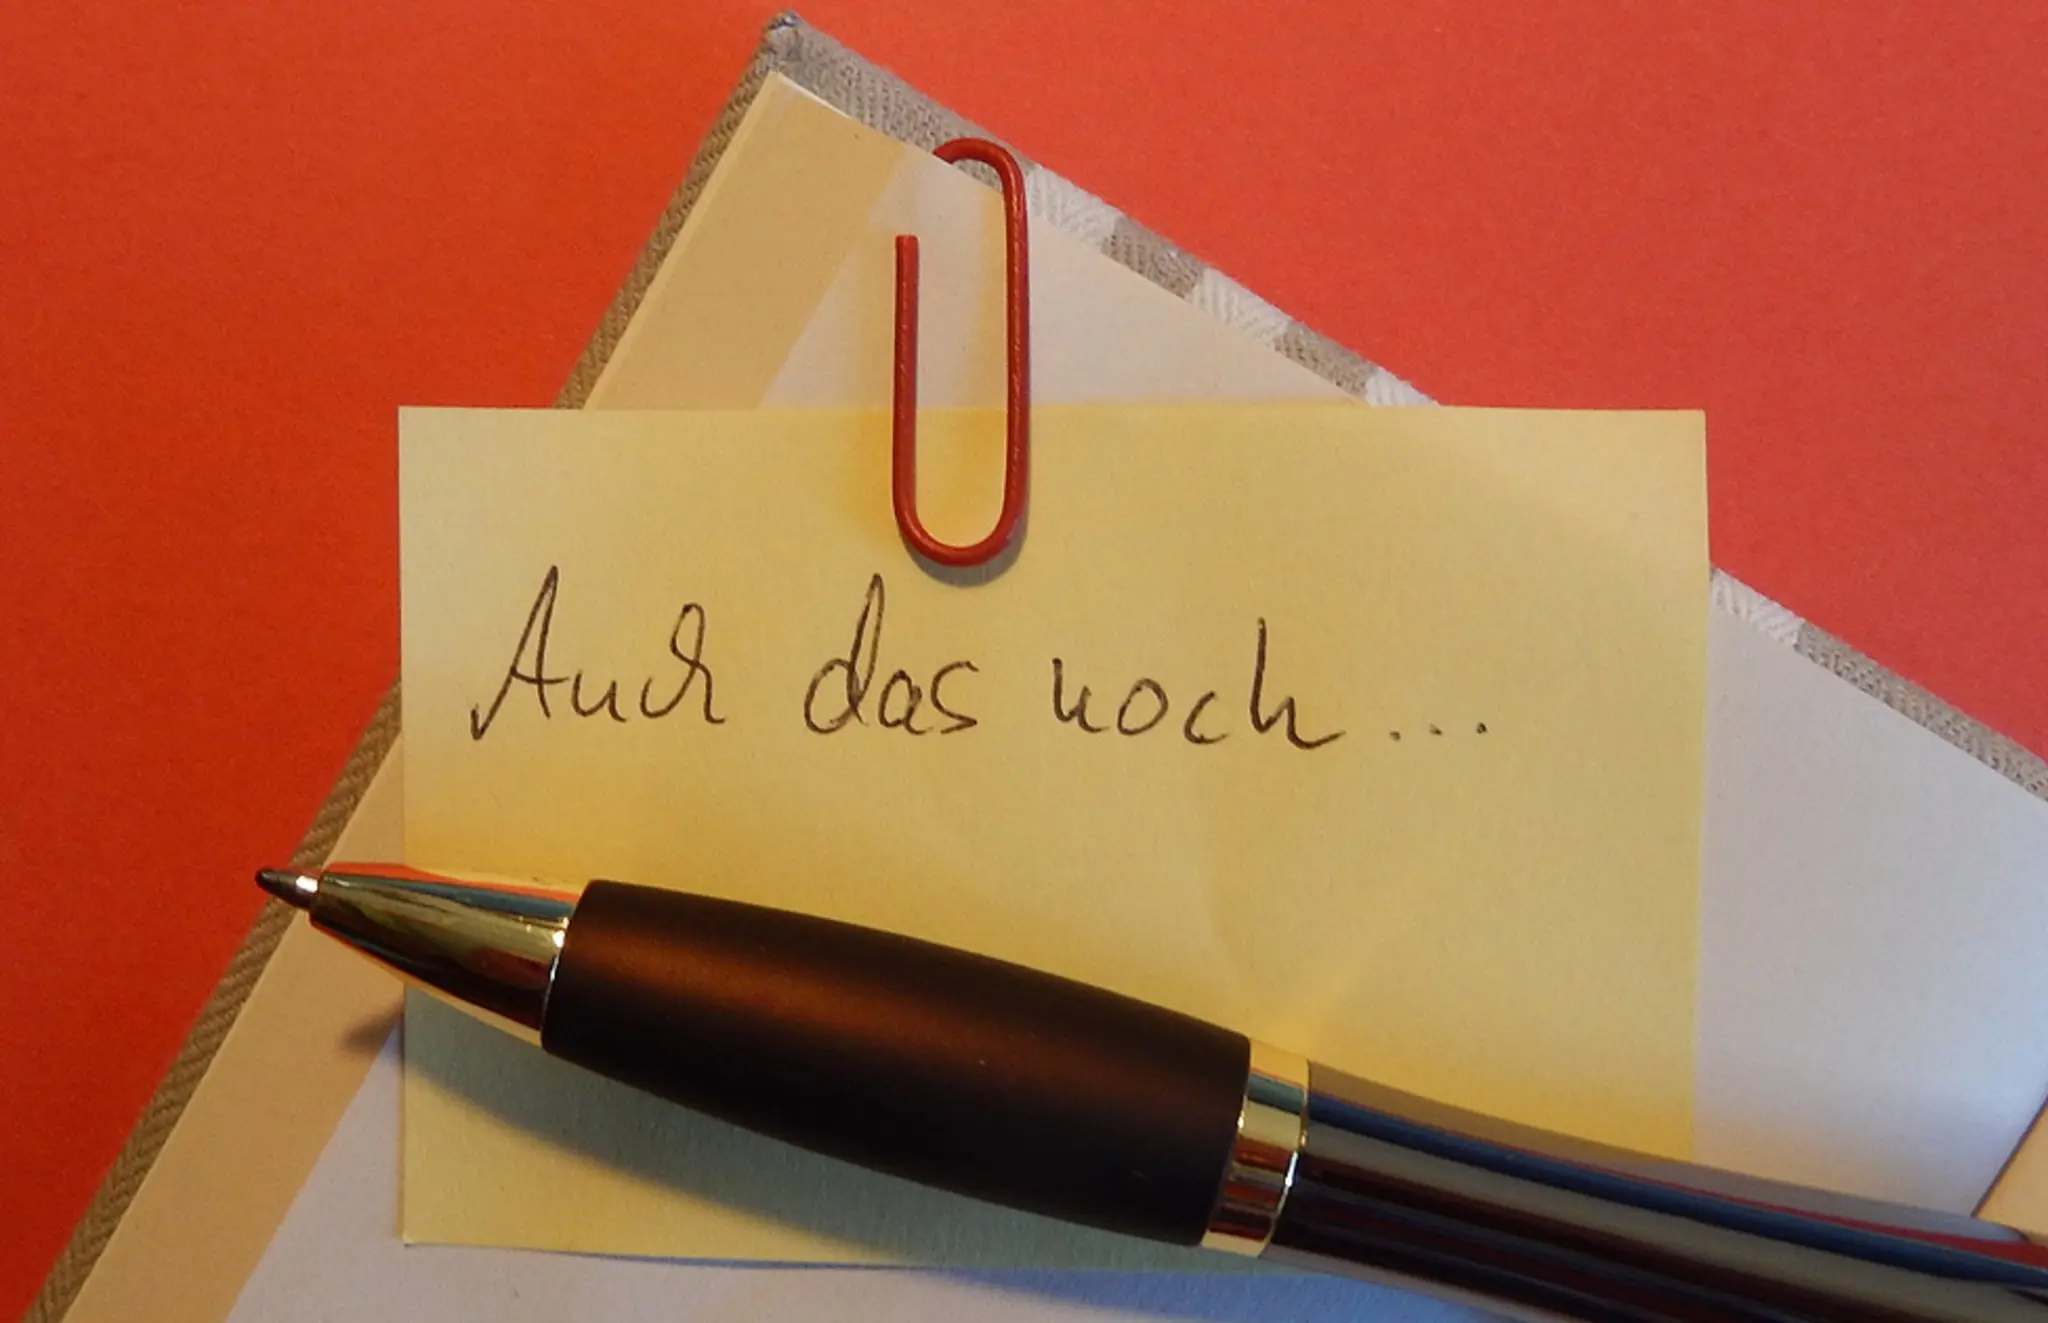 Auch das noch...